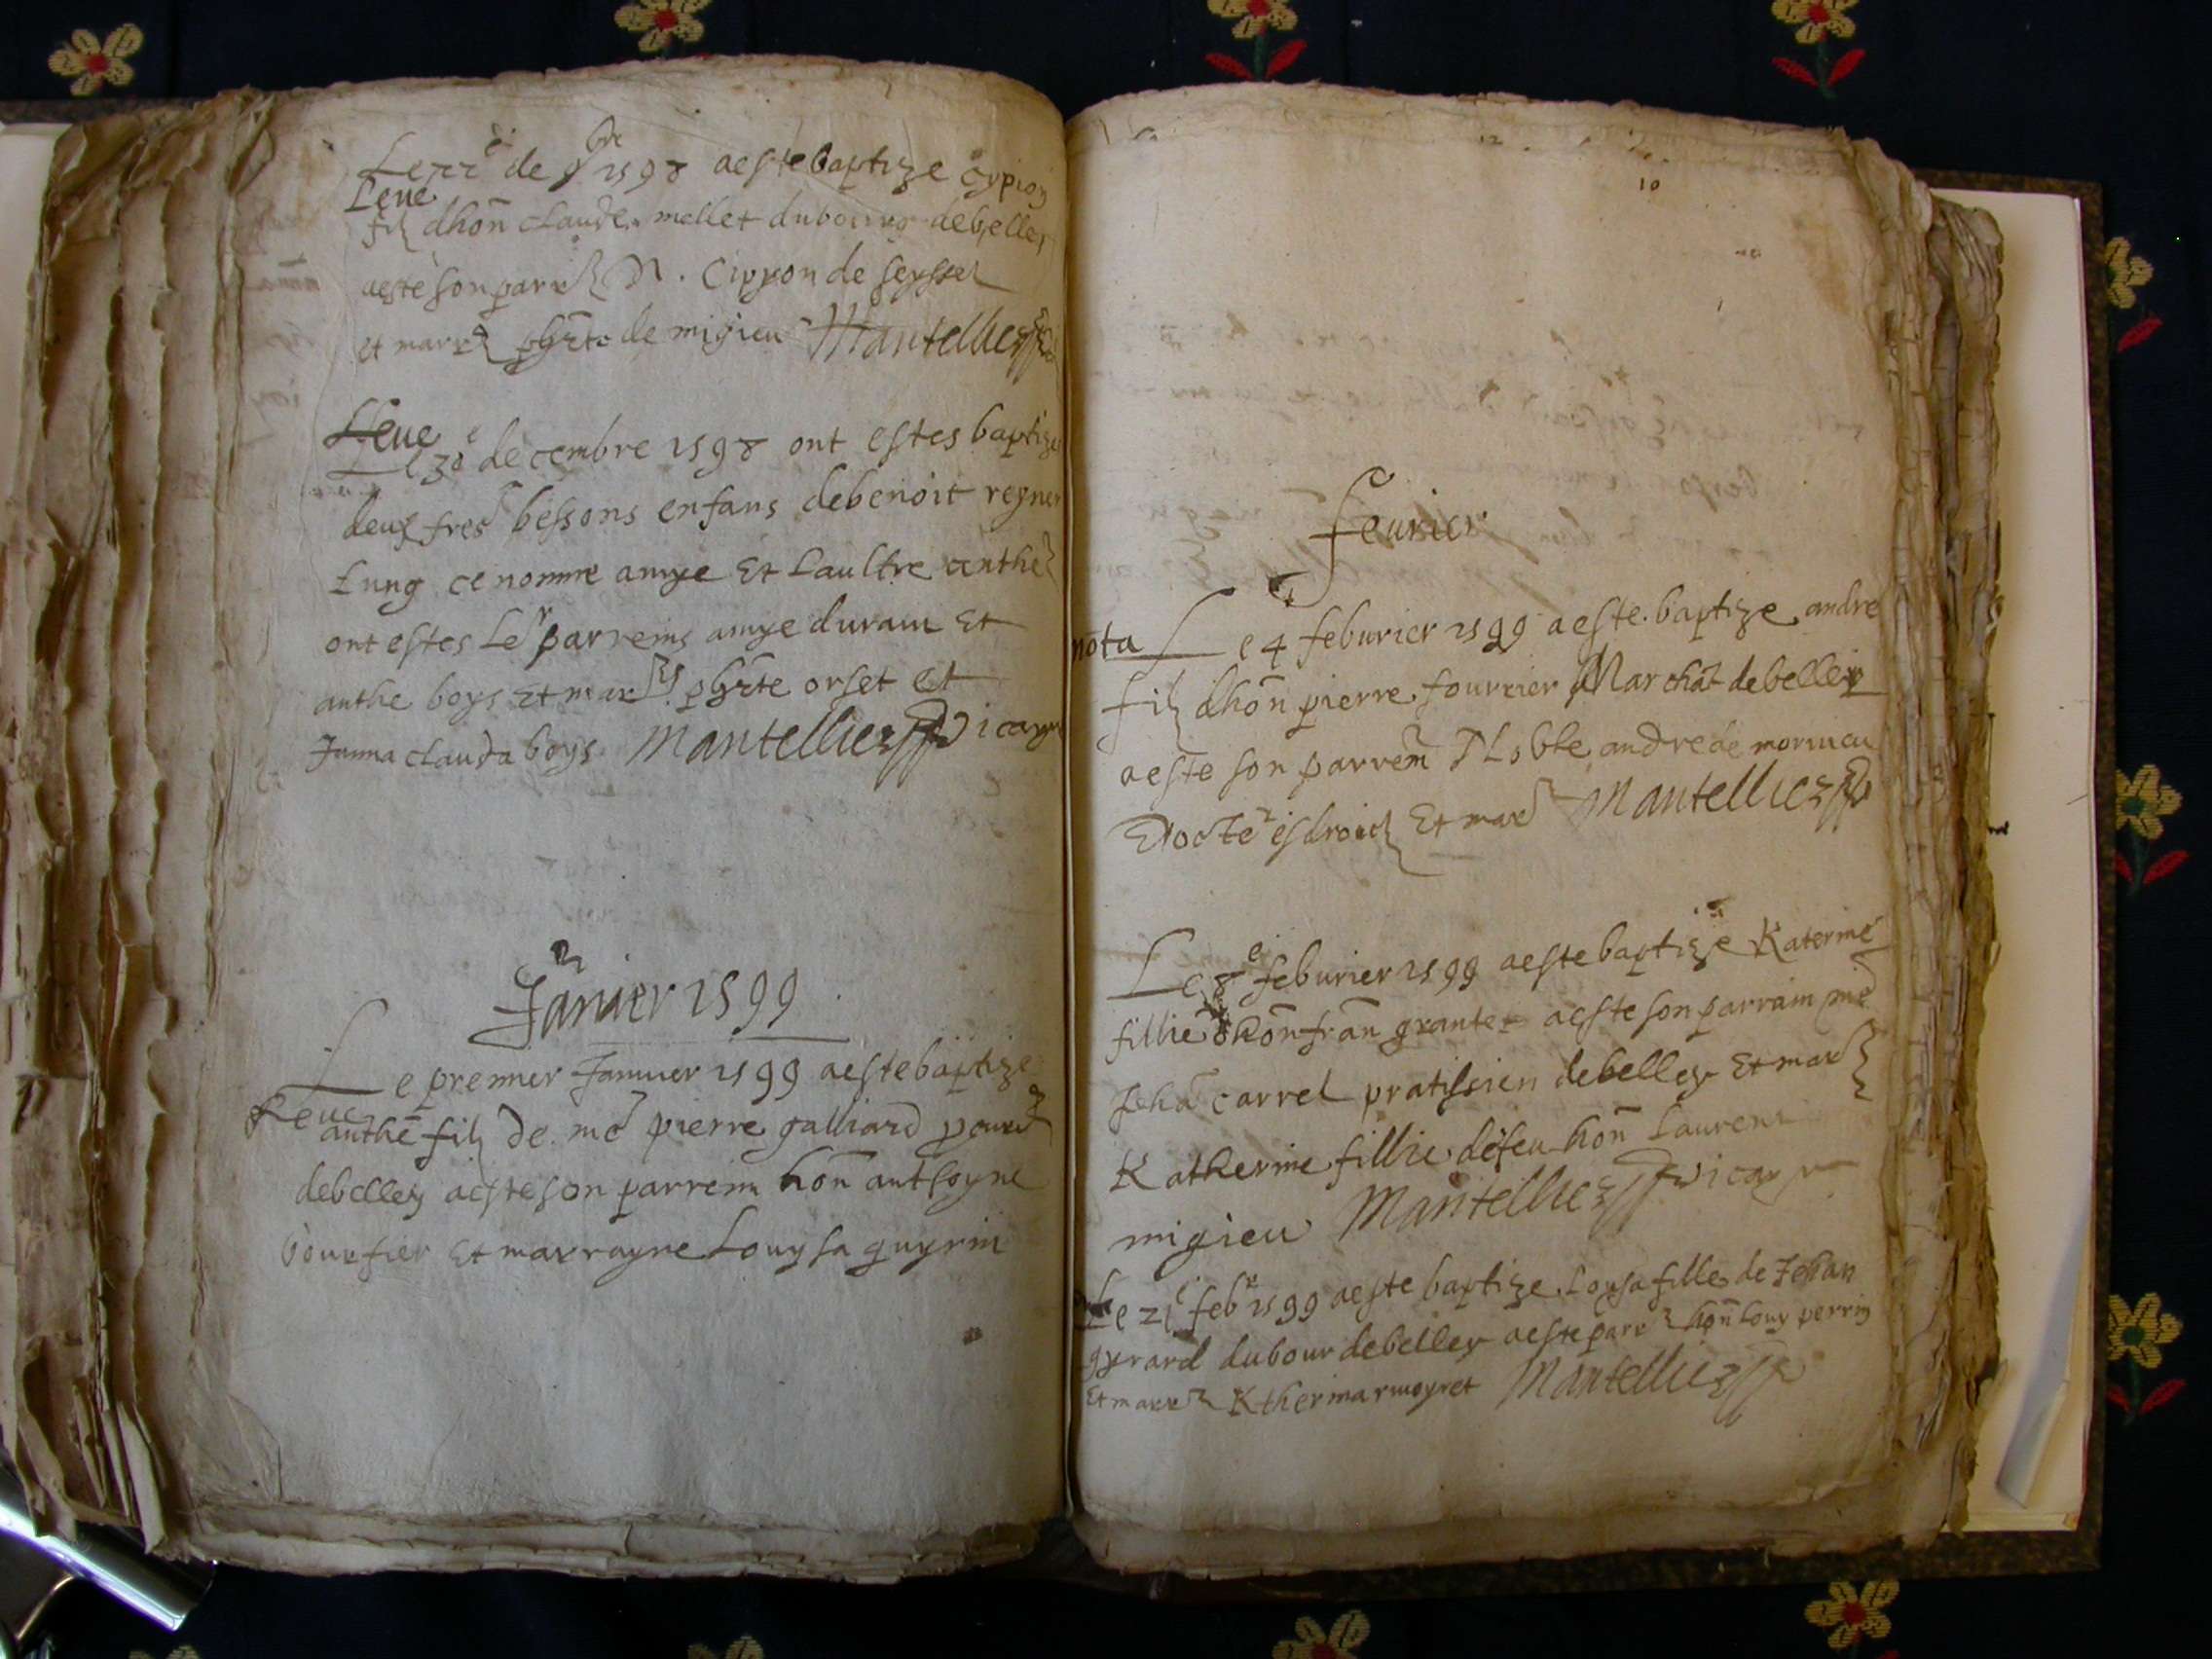 de 9bre 1598 a este baptize Cypion
Leue
filz dhon̄ Claude mellet du bourg de belley
a este son parr N. Cipyon de seyssel
et marr de migieu Mantellier
Leue
Le 30e decembre 1598 ont estes baptize
deux fres bessons enfans de benoit reyner
Lung ce nomme amye Et Laultre anthe
ont estes Ler parreins amye durain Et
anthe boys Et mar orset et
Janna clauda boys Mantellier vicayre
Januier 1599
Le premier Januier 1599 a este baptize
Leue
anthe filz de me pierre galliard
de belley a este son parrein hon̄ anthoyne
bourfier Et marrayne Louysa guyrin
10
feurier
nota Le 4 feburier 1599 a este baptize andre
filz dhon̄ pierre fourrier Marchāt de belley
a este son parrein Noble andre de mornieu
Docter es droictz Et mar Mantellier
Le 8e feburier 1599 a este baptize Katerine
fillie dhon̄ fran̄ grantet a este son parrain me
Jehā carrel pratissien de belley Et mar
Katherine fillie de feu hon̄ Laurens
migieu Mantellier vicayre
Le 21e febr 1599 a este baptize Loysa fille de Jehan
gyrard du bour de belley a este parr hon̄ Louy perrin
Et marr Ktherina rmoyret Mantellier